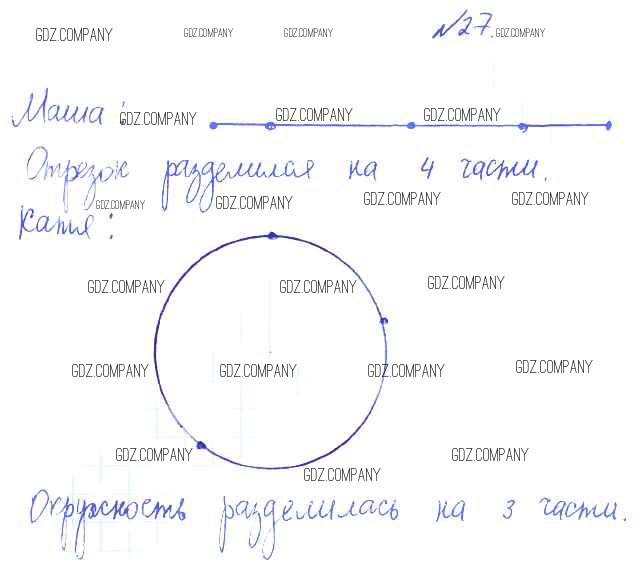 GDZ.COMPANY GDZ.COMPANY GDZ.COMPANY №27. GDZ.COMPANY
Маша: GDZ.COMPANY GDZ.COMPANY GDZ.COMPANY
Отрезок разделился на 4 части.
GDZ.COMPANY GDZ.COMPANY GDZ.COMPANY GDZ.COMPANY
Катя:
GDZ.COMPANY GDZ.COMPANY GDZ.COMPANY
GDZ.COMPANY GDZ.COMPANY GDZ.COMPANY GDZ.COMPANY
GDZ.COMPANY GDZ.COMPANY GDZ.COMPANY
Окружность разделилась на 3 части.